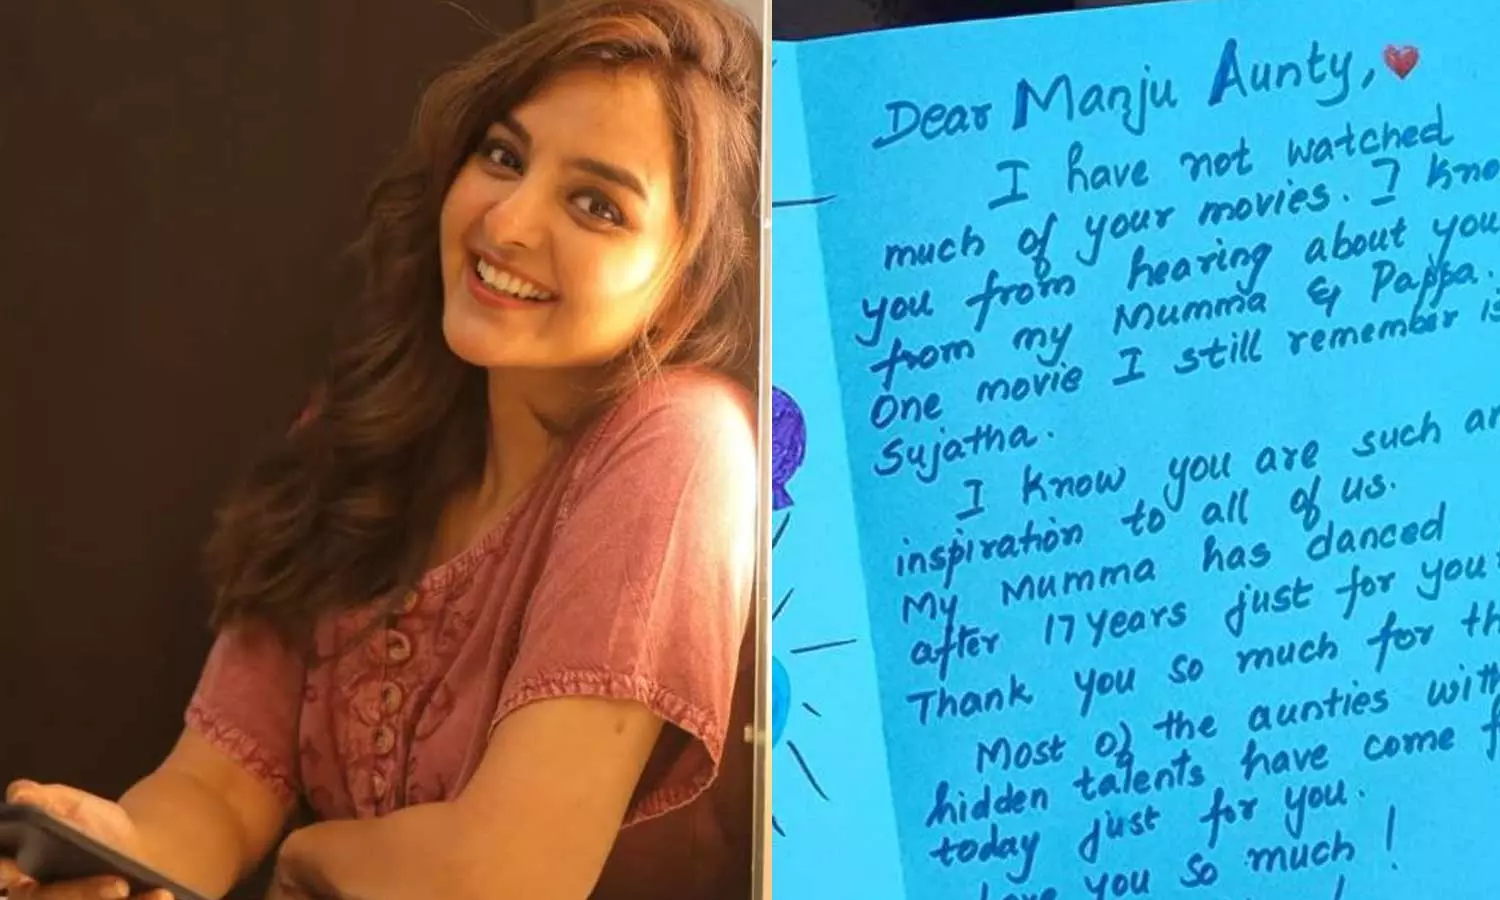 Dear Manju Aunty,
I have not watched
much of your movies. I
you from hearing about you
from my Mumma & Pappa.
One movie I still remember is
Sujatha.
I know you are such an
inspiration to all of us.
My Mumma has danced
after 17 years just for you
Thank you so much for
Most of the aunties with
hidden talents have come
today just for you.
you so much!